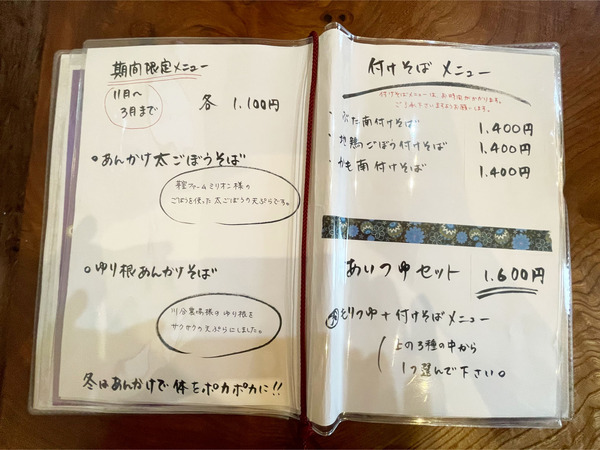 期間限定メニュー
11月〜
3月まで
各 1.100円
あんかけ太ごぼうそば
ファームミリオン様の
ごぼうを使った太ごぼうの天ぷらです。
ゆり根あんかけそば
川合農場様のゆり根を
サクサクの天ぷらにしました。
冬はあんかけで体をポカポカに!!
付けそばメニュー
付けそばメニューは、お時間がかかります。
ご了承下さいますようお願いします。
・ぶた南付けそば 1.400円
・地鶏ごぼう付けそば 1.400円
・かも南付けそば 1.400円
あいつゆセット 1.600円
とりつゆ+付けそばメニュー
上の3種の中から
1つ選んで下さい。